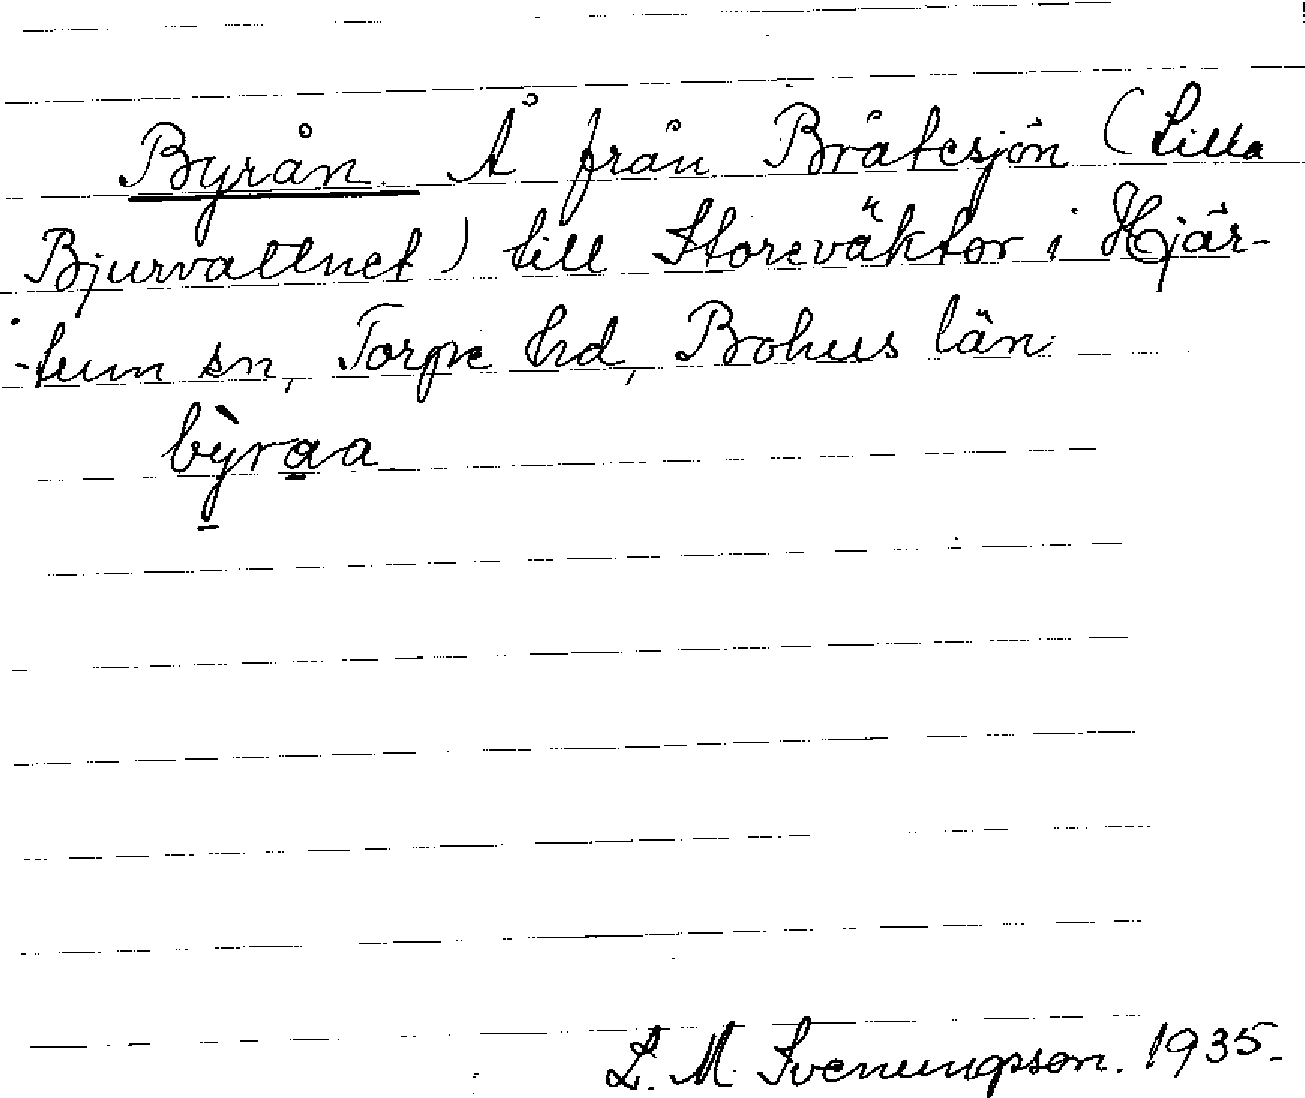 Byrån Å från Bråtesjön (Lilla
Bjurvattnet) till Storeväktor i Hjär-
-tum sn, Torpe hd, Bohus län
bỳraa
L. M. Svenungsson. 1935.